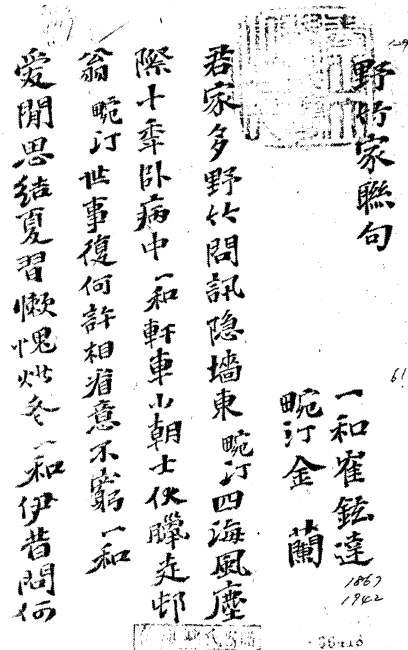 野竹家聯句
一和崔鉉達
1867
1942
畹汀金蘭
君家多野竹問訊隐墻東畹汀四海風塵
際十季臥病中一和軒車小朝士伏臘走邨
翁畹汀世事復何許相看意不窮一和
爱閒思結夏習懒愧冬一和伊昔問何